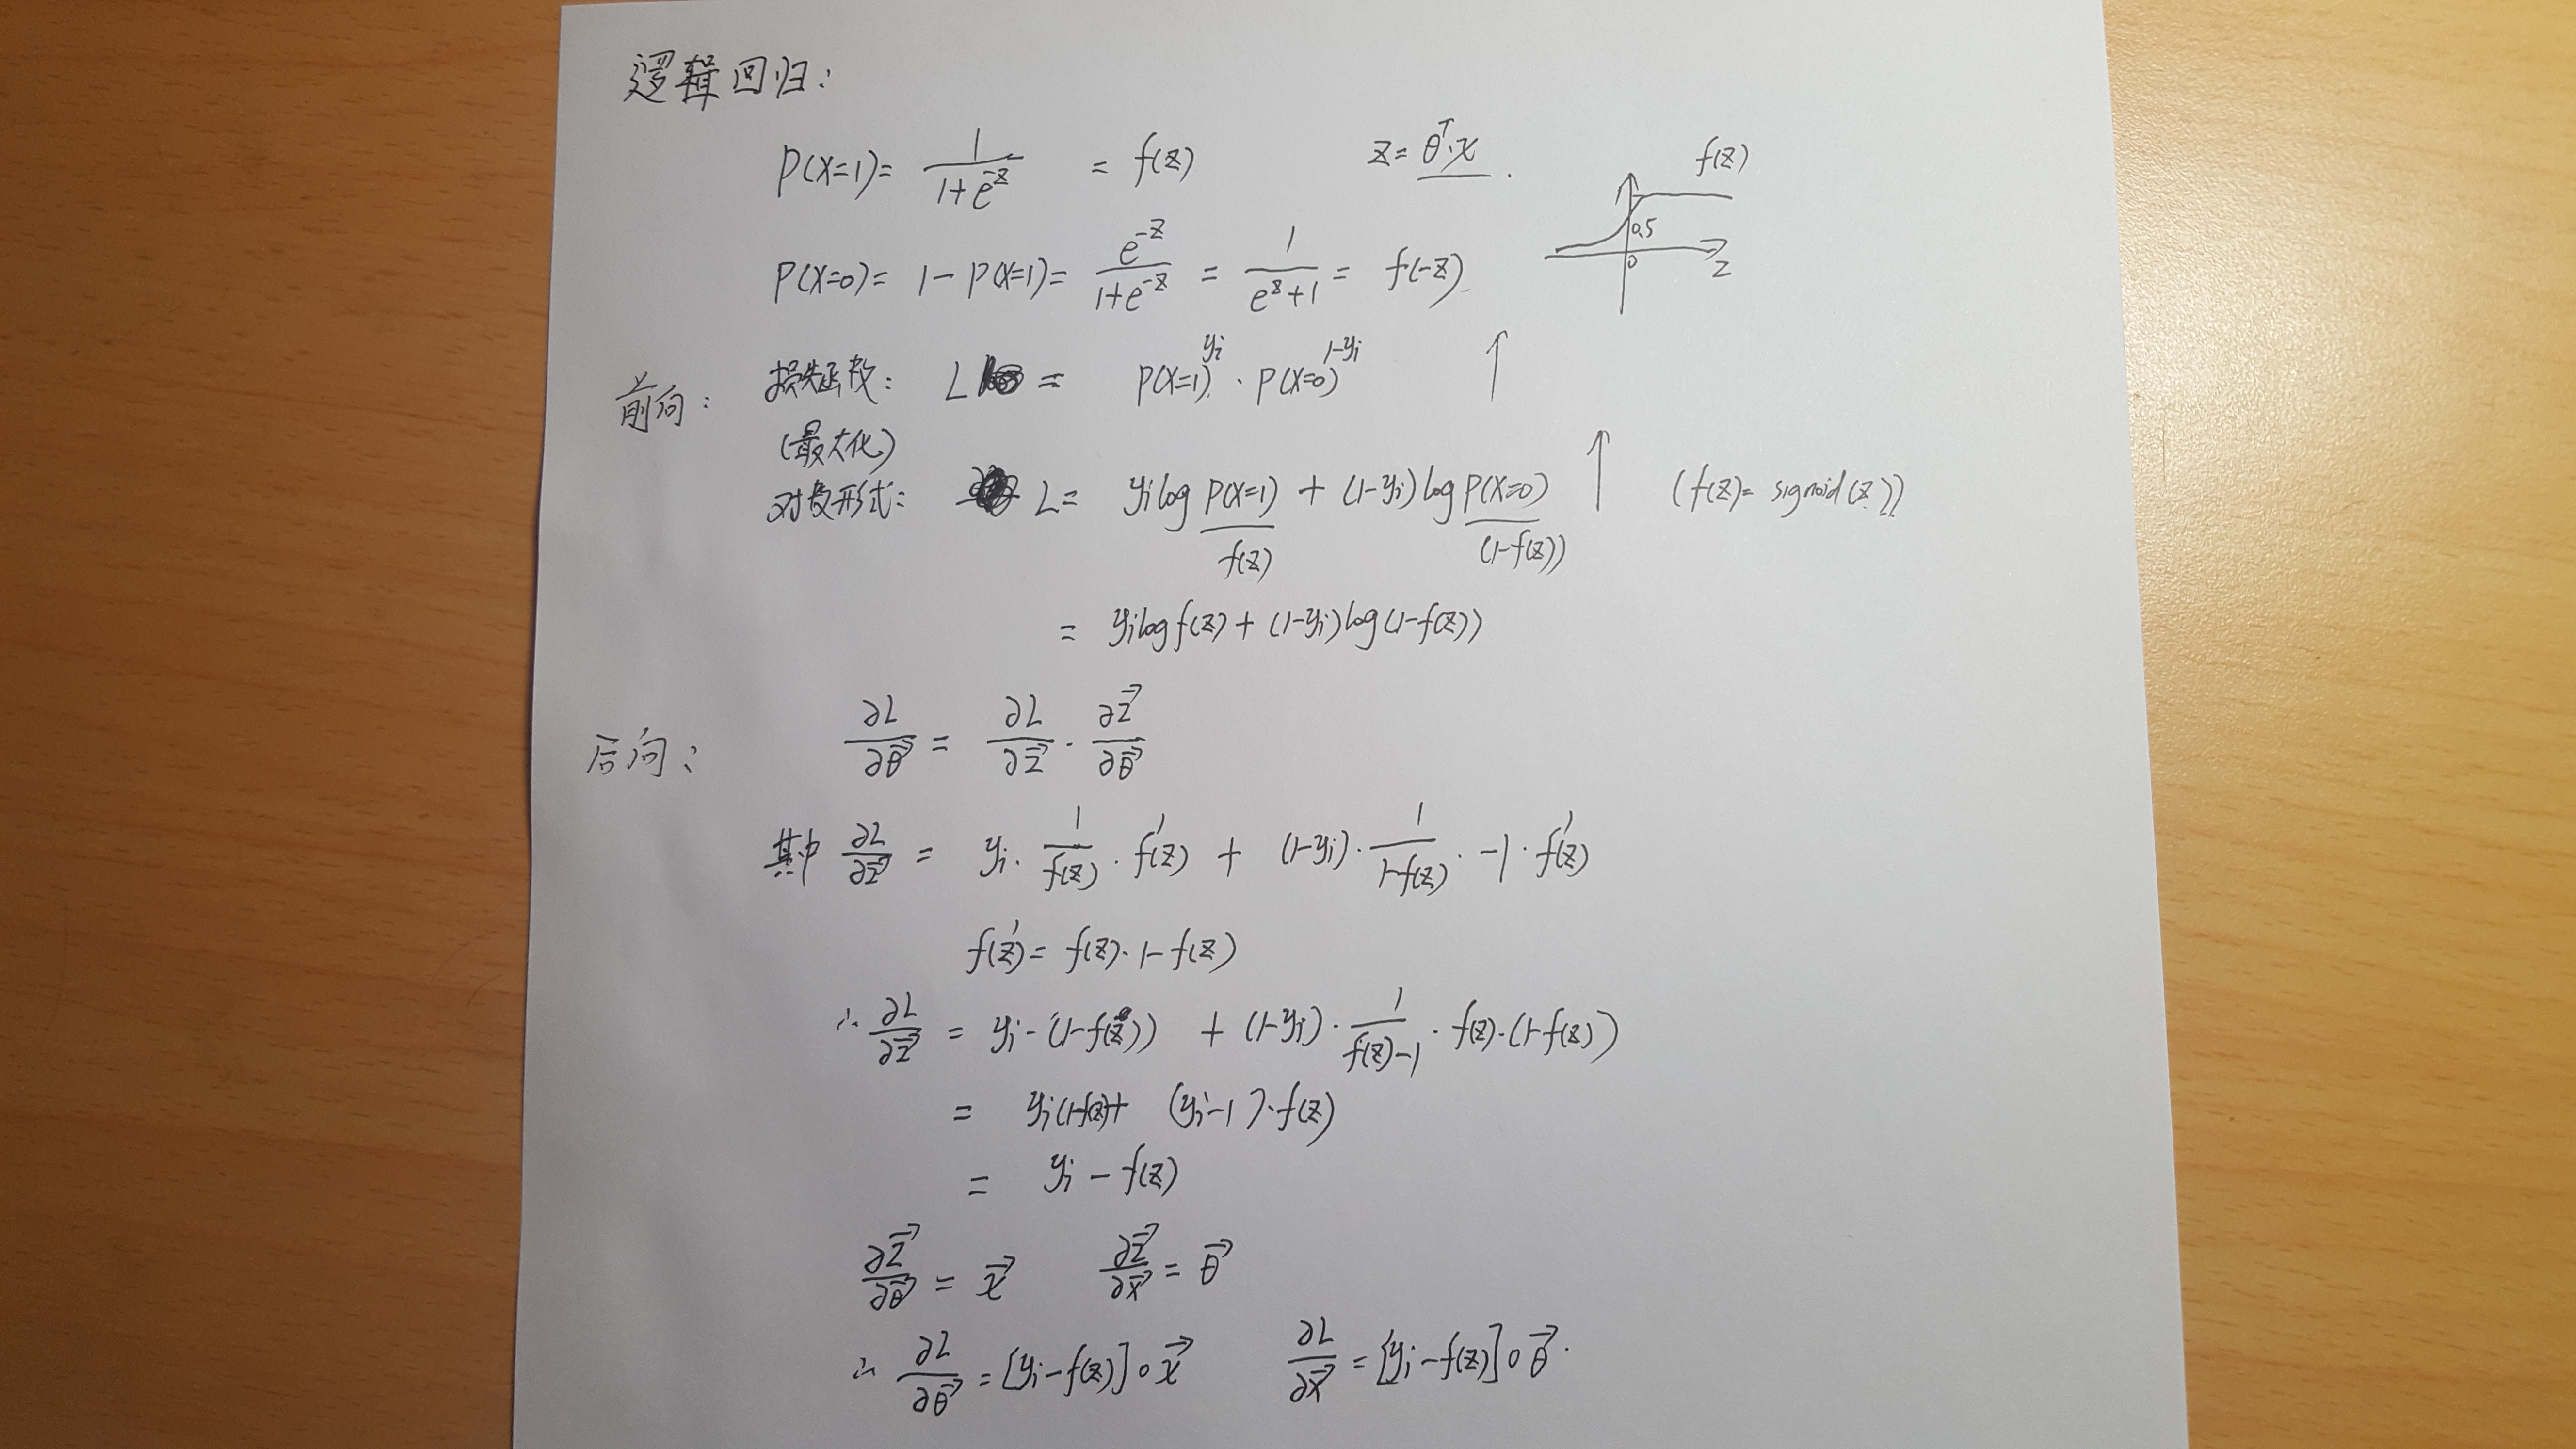 逻辑回归:
P(X=1)= \frac{1}{1+e^{-z}} = f(z) z=θ^T·x. f(z)
0.5
0 z
P(X=0)= 1-P(X=1)= \frac{e^{-z}}{1+e^{-z}} = \frac{1}{e^z+1} = f(-z)
前向: 损失函数: L = P(X=1)^{yi}·P(X=0)^{1-yi} ↑
(最大化)
对数形式: L= yi log P(X=1) + (1-yi) log P(X=0) ↑ (f(z)= sigmoid(z))
f(z) (1-f(z))
= yi log f(z) + (1-yi) log (1-f(z))
后向: \frac{∂L}{∂\vec{θ}} = \frac{∂L}{∂\vec{z}} · \frac{∂\vec{z}}{∂\vec{θ}}
其中 \frac{∂L}{∂\vec{z}} = yi· \frac{1}{f(z)} · f'(z) + (1-yi)· \frac{1}{1-f(z)} · -1 · f'(z)
f(z)'= f(z)·1-f(z)
∴ \frac{∂L}{∂\vec{z}} = yi-(1-f(z)) + (1-yi)· \frac{1}{f(z)-1} · f(z)·(1-f(z))
= yi(1-f(z))+ (yi-1)·f(z)
= yi - f(z)
\frac{∂\vec{z}}{∂\vec{θ}} = \vec{x} \frac{∂\vec{z}}{∂\vec{x}} = \vec{θ}
∴ \frac{∂L}{∂\vec{θ}} = [yi-f(z)]∘\vec{x} \frac{∂L}{∂\vec{x}} = [yi-f(z)]∘\vec{θ}.